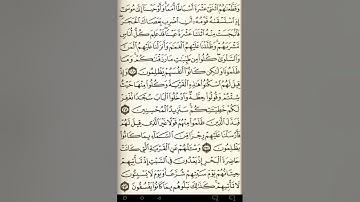 وَقَطَّعْنَٰهُمُ ٱثْنَتَىْ عَشْرَةَ أَسْبَاطًا أُمَمًا وَأَوْحَيْنَآ إِلَىٰ مُوسَىٰٓ
إِذِ ٱسْتَسْقَىٰهُ قَوْمُهُۥٓ أَنِ ٱضْرِب بِّعَصَاكَ ٱلْحَجَرَ
فَٱنۢبَجَسَتْ مِنْهُ ٱثْنَتَا عَشْرَةَ عَيْنًا قَدْ عَلِمَ كُلُّ أُنَاسٍ
مَّشْرَبَهُمْ وَظَلَّلْنَا عَلَيْهِمُ ٱلْغَمَٰمَ وَأَنزَلْنَا عَلَيْهِمُ ٱلْمَنَّ
وَٱلسَّلْوَىٰ كُلُوا۟ مِن طَيِّبَٰتِ مَا رَزَقْنَٰكُمْ وَمَا
ظَلَمُونَا وَلَٰكِن كَانُوٓا۟ أَنفُسَهُمْ يَظْلِمُونَ ١٦٠ وَإِذْ
قِيلَ لَهُمُ ٱسْكُنُوا۟ هَٰذِهِ ٱلْقَرْيَةَ وَكُلُوا۟ مِنْهَا حَيْثُ
شِئْتُمْ وَقُولُوا۟ حِطَّةٌ وَٱدْخُلُوا۟ ٱلْبَابَ سُجَّدًا نَّغْفِرْ
لَكُمْ خَطِيٓـَٰٔتِكُمْ سَنَزِيدُ ٱلْمُحْسِنِينَ ١٦١
فَبَدَّلَ ٱلَّذِينَ ظَلَمُوا۟ مِنْهُمْ قَوْلًا غَيْرَ ٱلَّذِى قِيلَ لَهُمْ
فَأَرْسَلْنَا عَلَيْهِمْ رِجْزًا مِّنَ ٱلسَّمَآءِ بِمَا كَانُوا۟
يَظْلِمُونَ ١٦٢ وَسْـَٔلْهُمْ عَنِ ٱلْقَرْيَةِ ٱلَّتِى كَانَتْ
حَاضِرَةَ ٱلْبَحْرِ إِذْ يَعْدُونَ فِى ٱلسَّبْتِ إِذْ تَأْتِيهِمْ
حِيتَانُهُمْ يَوْمَ سَبْتِهِمْ شُرَّعًا وَيَوْمَ لَا يَسْبِتُونَ
لَا تَأْتِيهِمْ كَذَٰلِكَ نَبْلُوهُم بِمَا كَانُوا۟ يَفْسُقُونَ ١٦٣